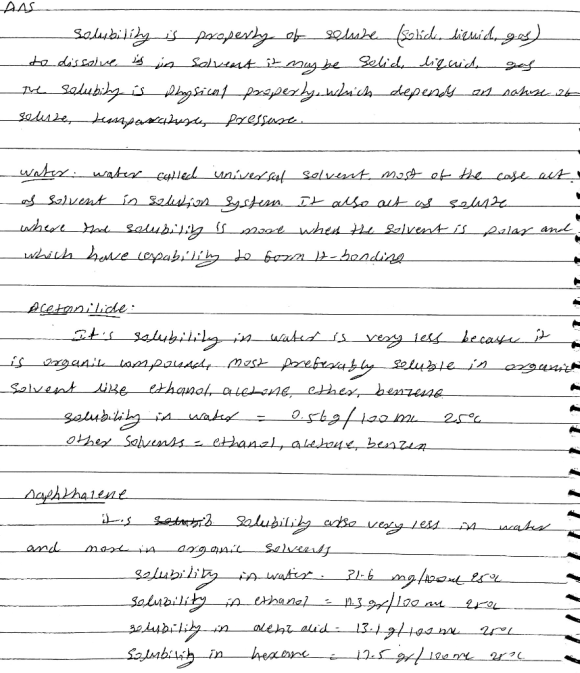 Ans
Solubility is property of solute (solid, liquid, gas)
to dissolve is in solvent it may be solid, liquid, gas
The solubility is physical property, which depends on nature of
solute, temparature, pressure.
water: water called universal solvent. most of the case act
as solvent in solution system It also act as solute
where the solubility is more when the solvent is polar and
which have capability to form H-bonding
Acetanilide:
It's solubility in water is very less because it
is organic compound, most preferably soluble in organic
solvent like ethanol, acetone, ether, benzene
solubility in water = 0.56g/100 ml 25°c
other solvents = ethanol, acetone, benzen
Naphthalene
it.s solubility also very less in water
and more in organic solvents
solubility in water . 31.6 mg/100ml 25°c
solubility in ethanol = 11.3 gr/100 ml 25°c
solubility in acetic acid = 13.1 g/100ml 25°c
solubility in hexane = 17.5 gr/100ml 25°c